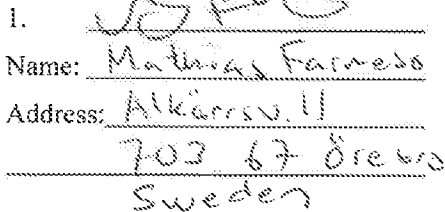 1.
Name: Mathias Farnebo
Address: Alkärrsv. 11
703 67 Örebro
Sweden